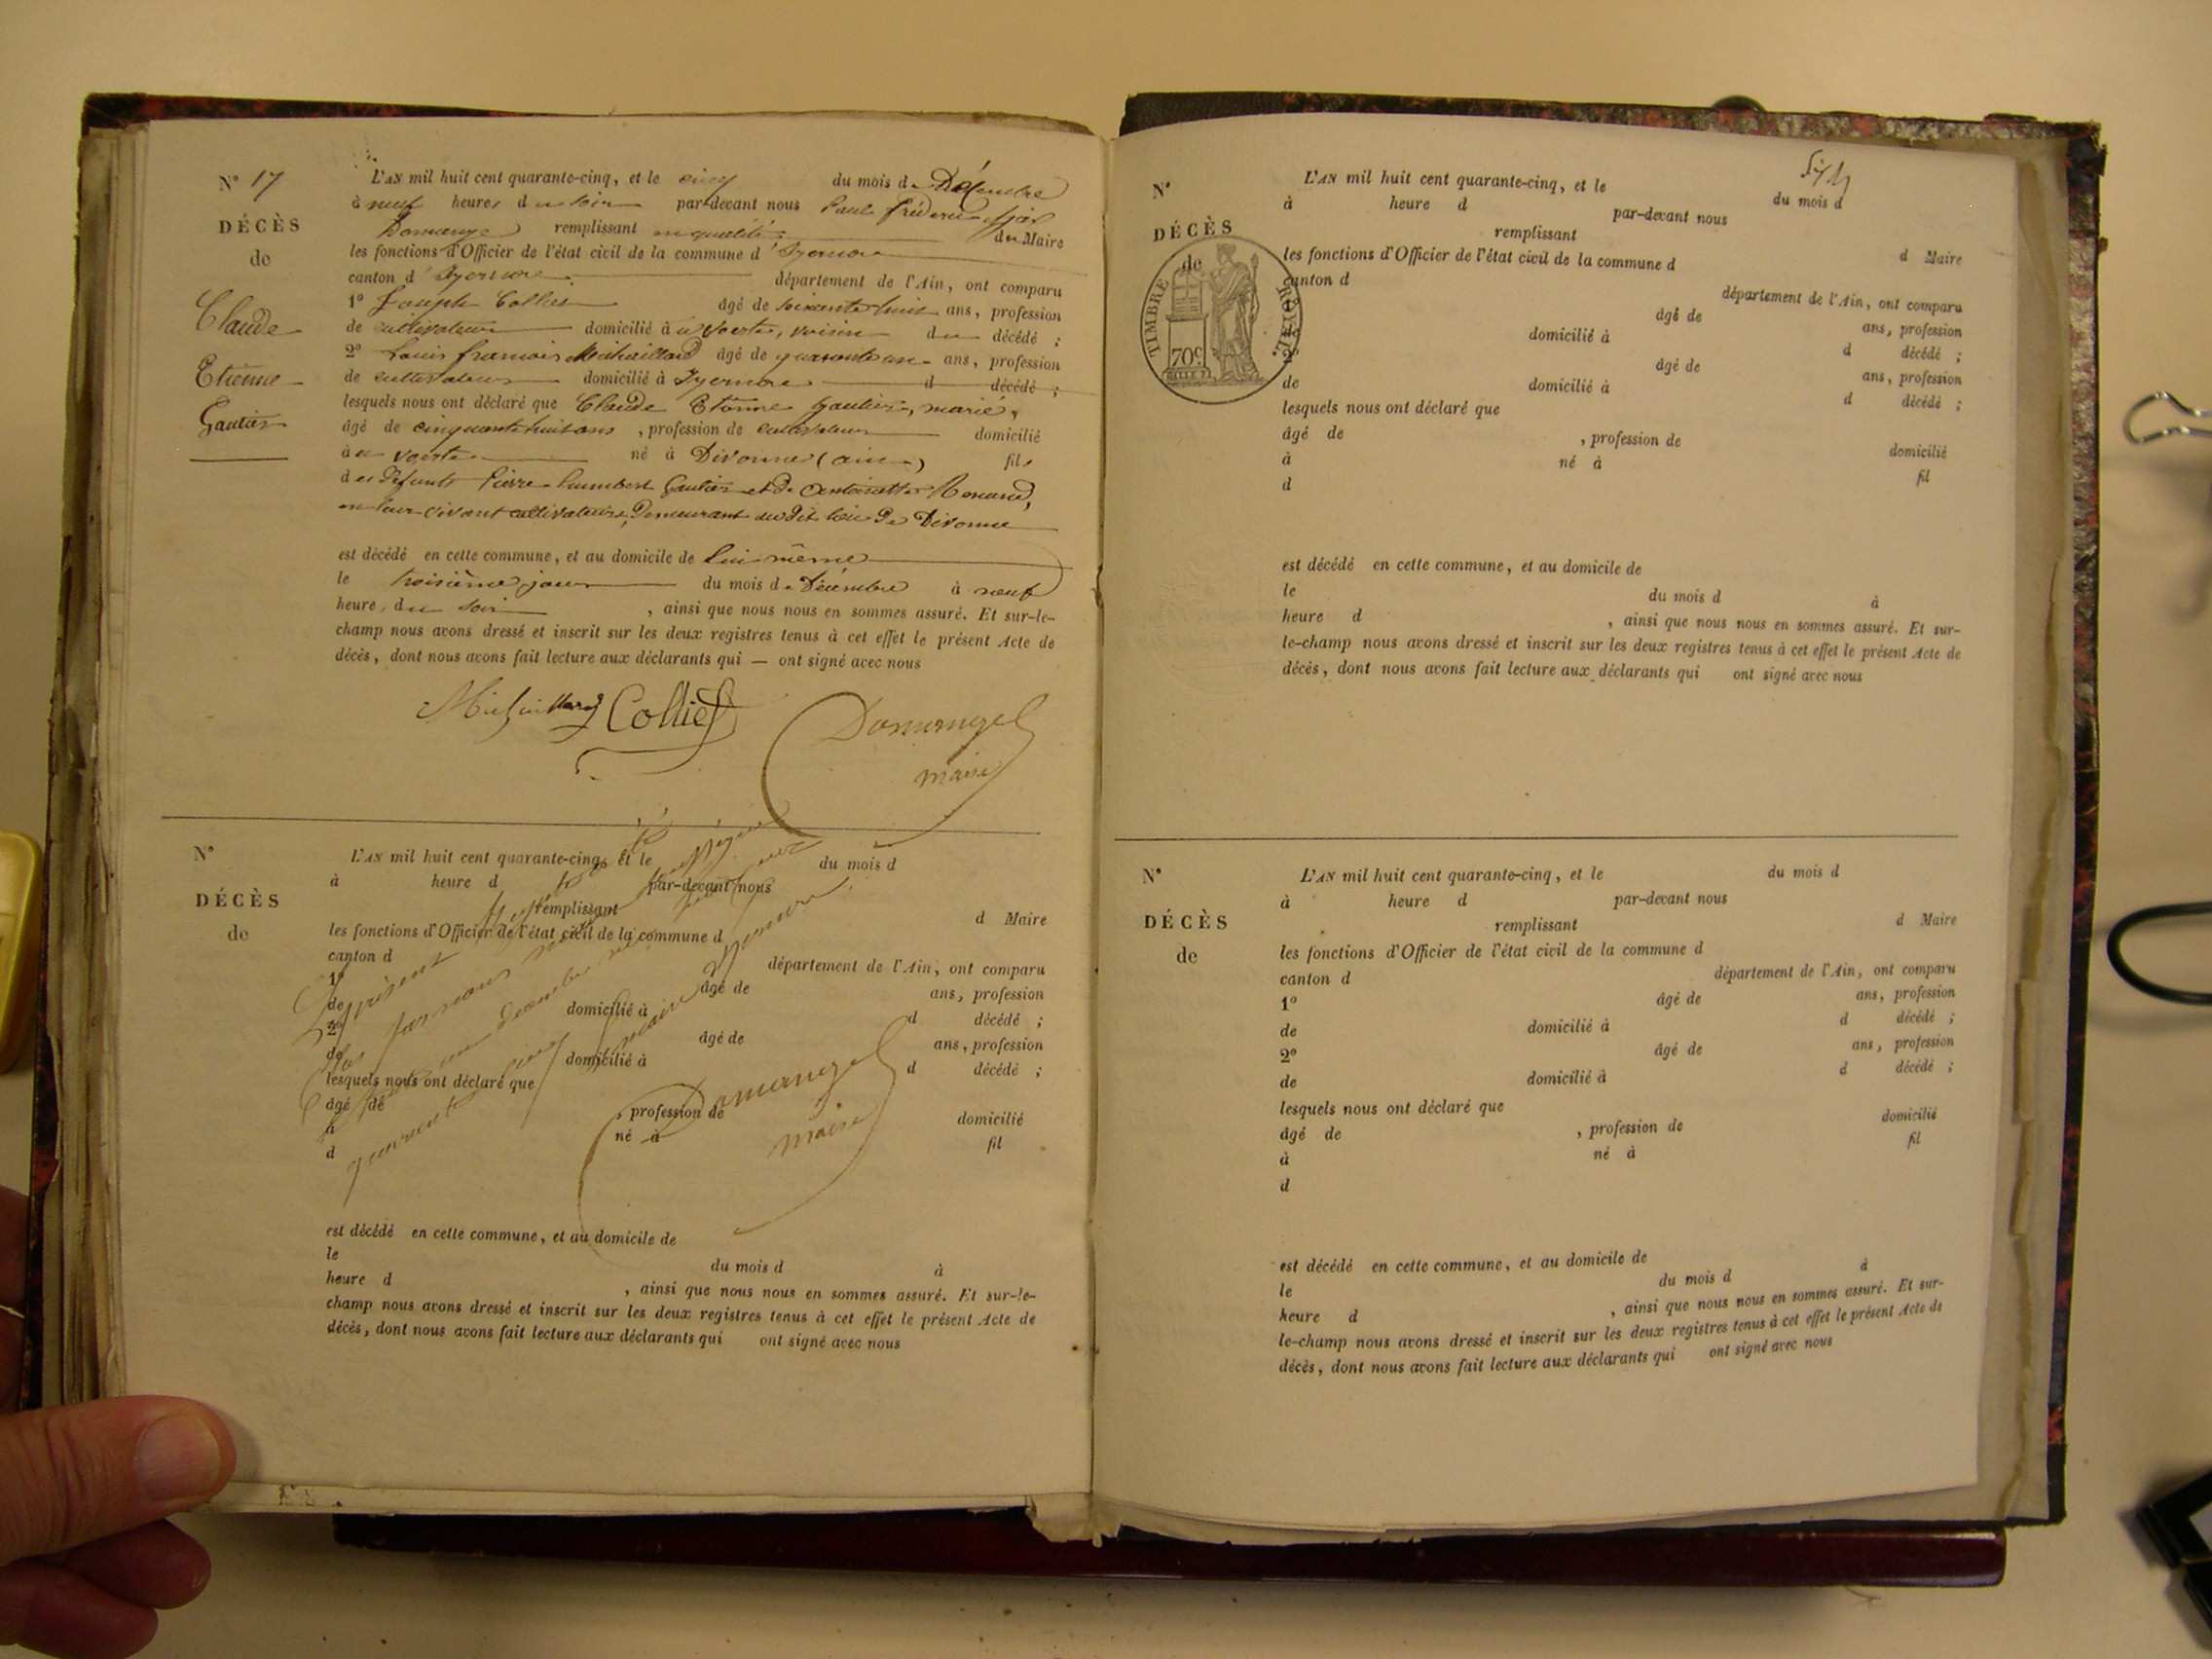 N° 17
DÉCÈS
de
Claude
Etienne
Gautier
L'AN mil huit cent quarante-cinq, et le cinq du mois de Décembre
à neuf heures du soir par-devant nous Paul Fréderic
Domange remplissant en qualité du Maire
les fonctions d'Officier de l'état civil de la commune d'Izernore
canton d'Izernore département de l'Ain, ont comparu
1° Joseph Collier âgé de soixante huit ans, profession
de cultivateur domicilié à voisin du décédé ;
2° Louis françois âgé de quarante un ans, profession
de cultivateur domicilié à Izernore d décédé ;
lesquels nous ont déclaré que Claude Etienne Gautier, marié,
âgé de cinquante huit ans , profession de cultivateur domicilié
à né à Divonne (ain) fils
des défunts Pierre humbert Gautier et de Antoinette
en leur vivant cultivateurs, demeurant au dit lieu de Divonne
est décédé en cette commune, et au domicile de lui même
le troisième jour du mois de Décembre à neuf
heures du soir , ainsi que nous nous en sommes assuré. Et sur-le-
champ nous avons dressé et inscrit sur les deux registres tenus à cet effet le présent Acte de
décès, dont nous avons fait lecture aux déclarants qui — ont signé avec nous
Collier
Domange
maire
N°
DÉCÈS
de
L'AN mil huit cent quarante-cinq, et le du mois d
à heure d par-devant nous
remplissant d Maire
les fonctions d'Officier de l'état civil de la commune d
canton d département de l'Ain, ont comparu
1° âgé de ans, profession
de domicilié à d décédé ;
2° âgé de ans, profession
de domicilié à d décédé ;
lesquels nous ont déclaré que
âgé de , profession de domicilié
à né à fil
d
présent
par nous maire
décembre
quarante cinq
Domange
maire
est décédé en cette commune, et au domicile de
le du mois d à
heure d , ainsi que nous nous en sommes assuré. Et sur-le-
champ nous avons dressé et inscrit sur les deux registres tenus à cet effet le présent Acte de
décès, dont nous avons fait lecture aux déclarants qui ont signé avec nous
N°
DÉCÈS
de
TIMBRE ROYAL
70c
L'AN mil huit cent quarante-cinq, et le du mois d
à heure d par-devant nous
remplissant d Maire
les fonctions d'Officier de l'état civil de la commune d
canton d département de l'Ain, ont comparu
âgé de ans, profession
domicilié à d décédé ;
2° âgé de ans, profession
de domicilié à d décédé ;
lesquels nous ont déclaré que
âgé de , profession de domicilié
à né à fil
d
est décédé en cette commune, et au domicile de
le du mois d à
heure d , ainsi que nous nous en sommes assuré. Et sur-
le-champ nous avons dressé et inscrit sur les deux registres tenus à cet effet le présent Acte de
décès, dont nous avons fait lecture aux déclarants qui ont signé avec nous
N°
DÉCÈS
de
L'AN mil huit cent quarante-cinq, et le du mois d
à heure d par-devant nous
remplissant d Maire
les fonctions d'Officier de l'état civil de la commune d
canton d département de l'Ain, ont comparu
1° âgé de ans, profession
de domicilié à d décédé ;
2° âgé de ans, profession
de domicilié à d décédé ;
lesquels nous ont déclaré que
âgé de , profession de domicilié
à né à fil
d
est décédé en cette commune, et au domicile de
le du mois d à
heure d , ainsi que nous nous en sommes assuré. Et sur-
le-champ nous avons dressé et inscrit sur les deux registres tenus à cet effet le présent Acte de
décès, dont nous avons fait lecture aux déclarants qui ont signé avec nous